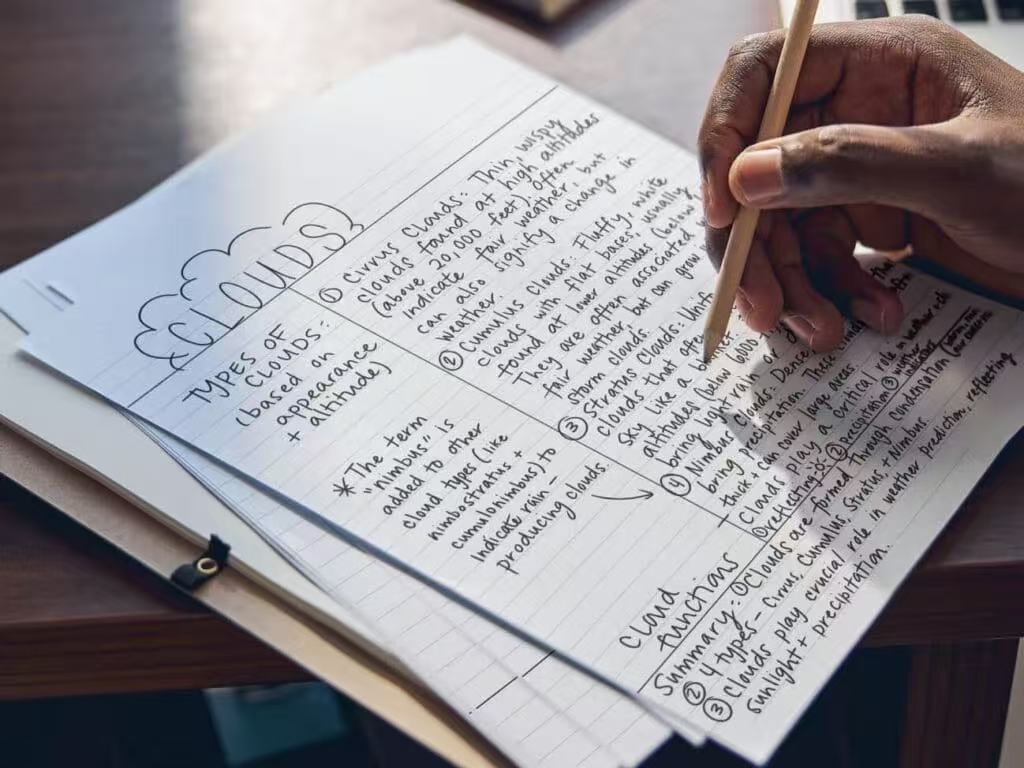 CLOUDS
TYPES OF
CLOUDS:
(based on
appearance
+ altitude)
*The term
"nimbus" is
added to other
cloud types (like
nimbostratus +
cumulonimbus) to
indicate rain-
producing clouds.
① Cirrus Clouds: Thin, wispy
clouds found at high altitudes
(above 20,000 feet). Often
indicate fair weather, but
can also signify a change in
weather.
② Cumulus Clouds: Fluffy, white
clouds with flat bases; usually
found at lower altitudes (below
They are often associated
fair weather but can grow
storm clouds.
③ Stratus Clouds:
clouds that
sky like a
altitudes (below 6000
bring light rain or
④ Nimbus Clouds: Dense
bring precipitation. These
think can cover large areas.
Cloud
functions
Clouds play a critical role in weather
① reflecting ② precipitation ③
Summary: ① Clouds are formed through condensation
② 4 types - Cirrus, Cumulus, Stratus + Nimbus
③ Clouds play crucial role in weather prediction, reflecting
sunlight + precipitation.